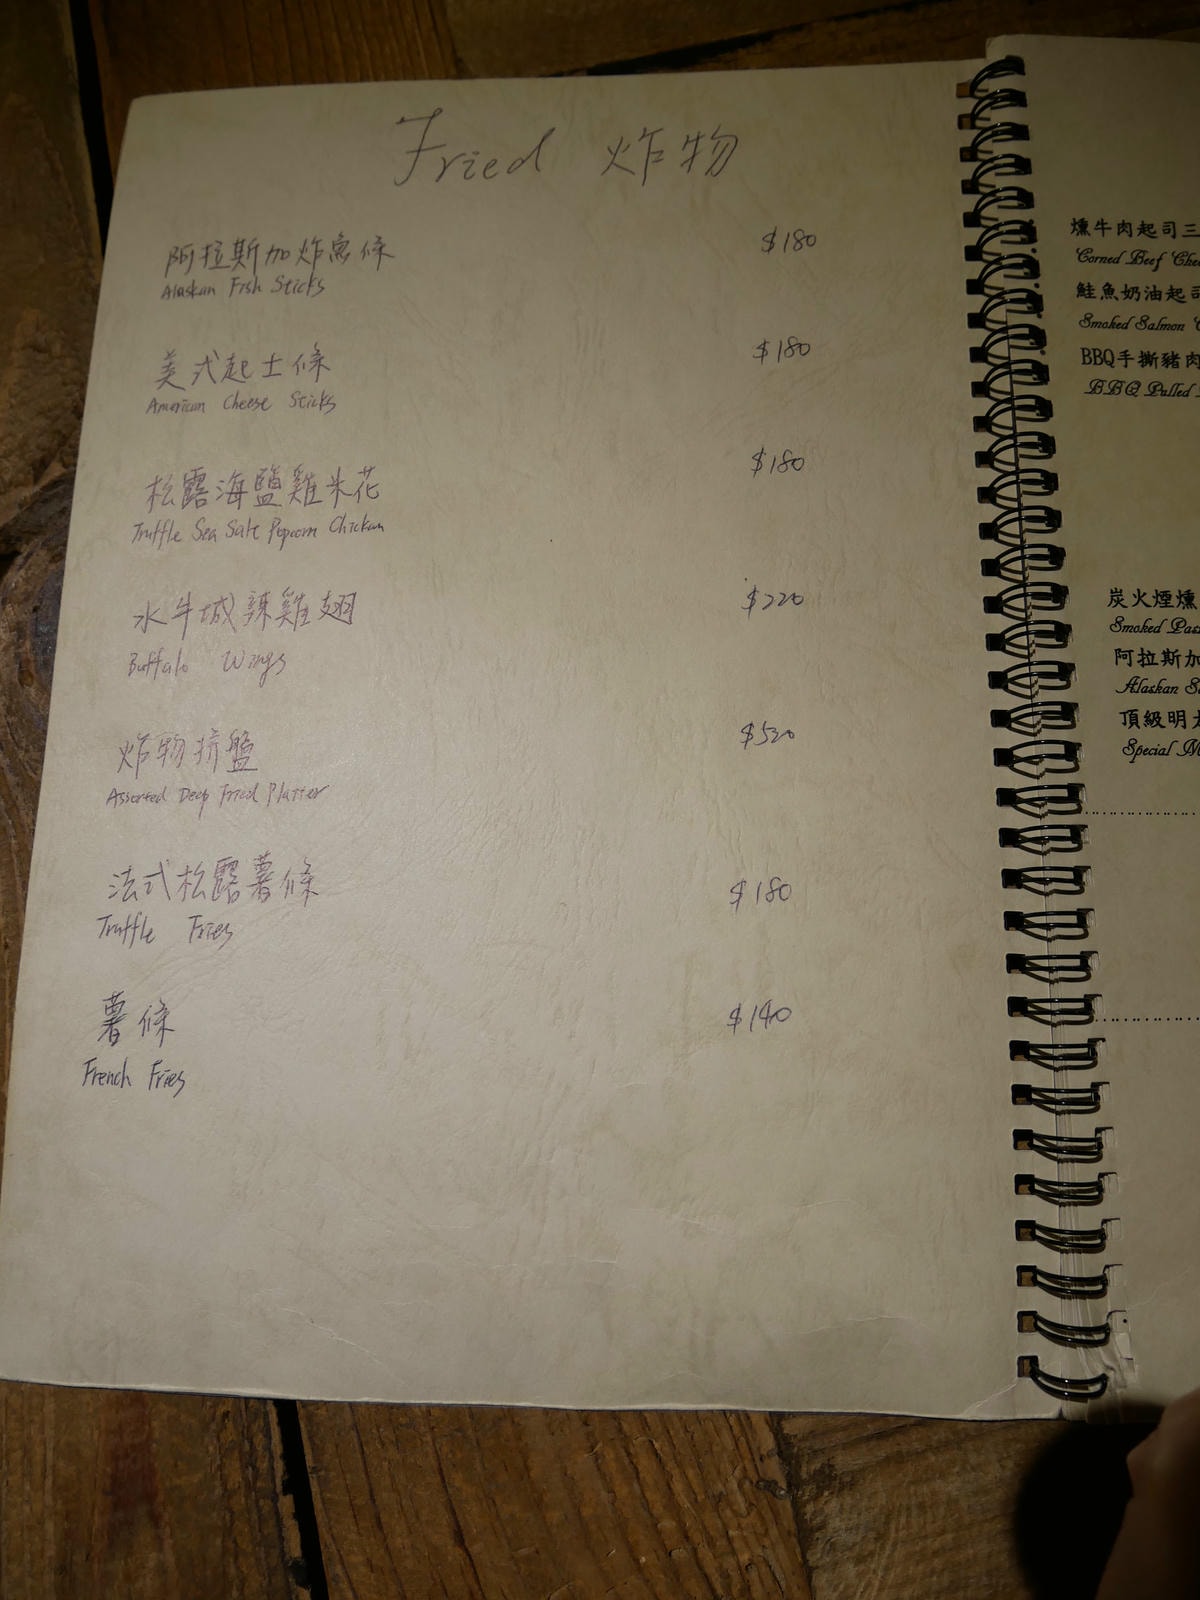 Fried 炸物
阿拉斯加炸魚條 $180
Alaskan Fish Sticks
美式起士條 $180
American Cheese Sticks
松露海鹽雞米花 $180
Truffle Sea Salt Popcorn Chicken
水牛城辣雞翅 $220
Buffalo Wings
炸物拼盤 $520
Assorted Deep Fried Platter
法式松露薯條 $180
Truffle Fries
薯條 $140
French Fries
燻牛肉起司三
Corned Beef Chee
鮭魚奶油起司
Smoked Salmon
BBQ手撕豬肉
BBQ Pulled
炭火煙燻
Smoked Pas
阿拉斯加
Alaskan S
頂級明太
Special M